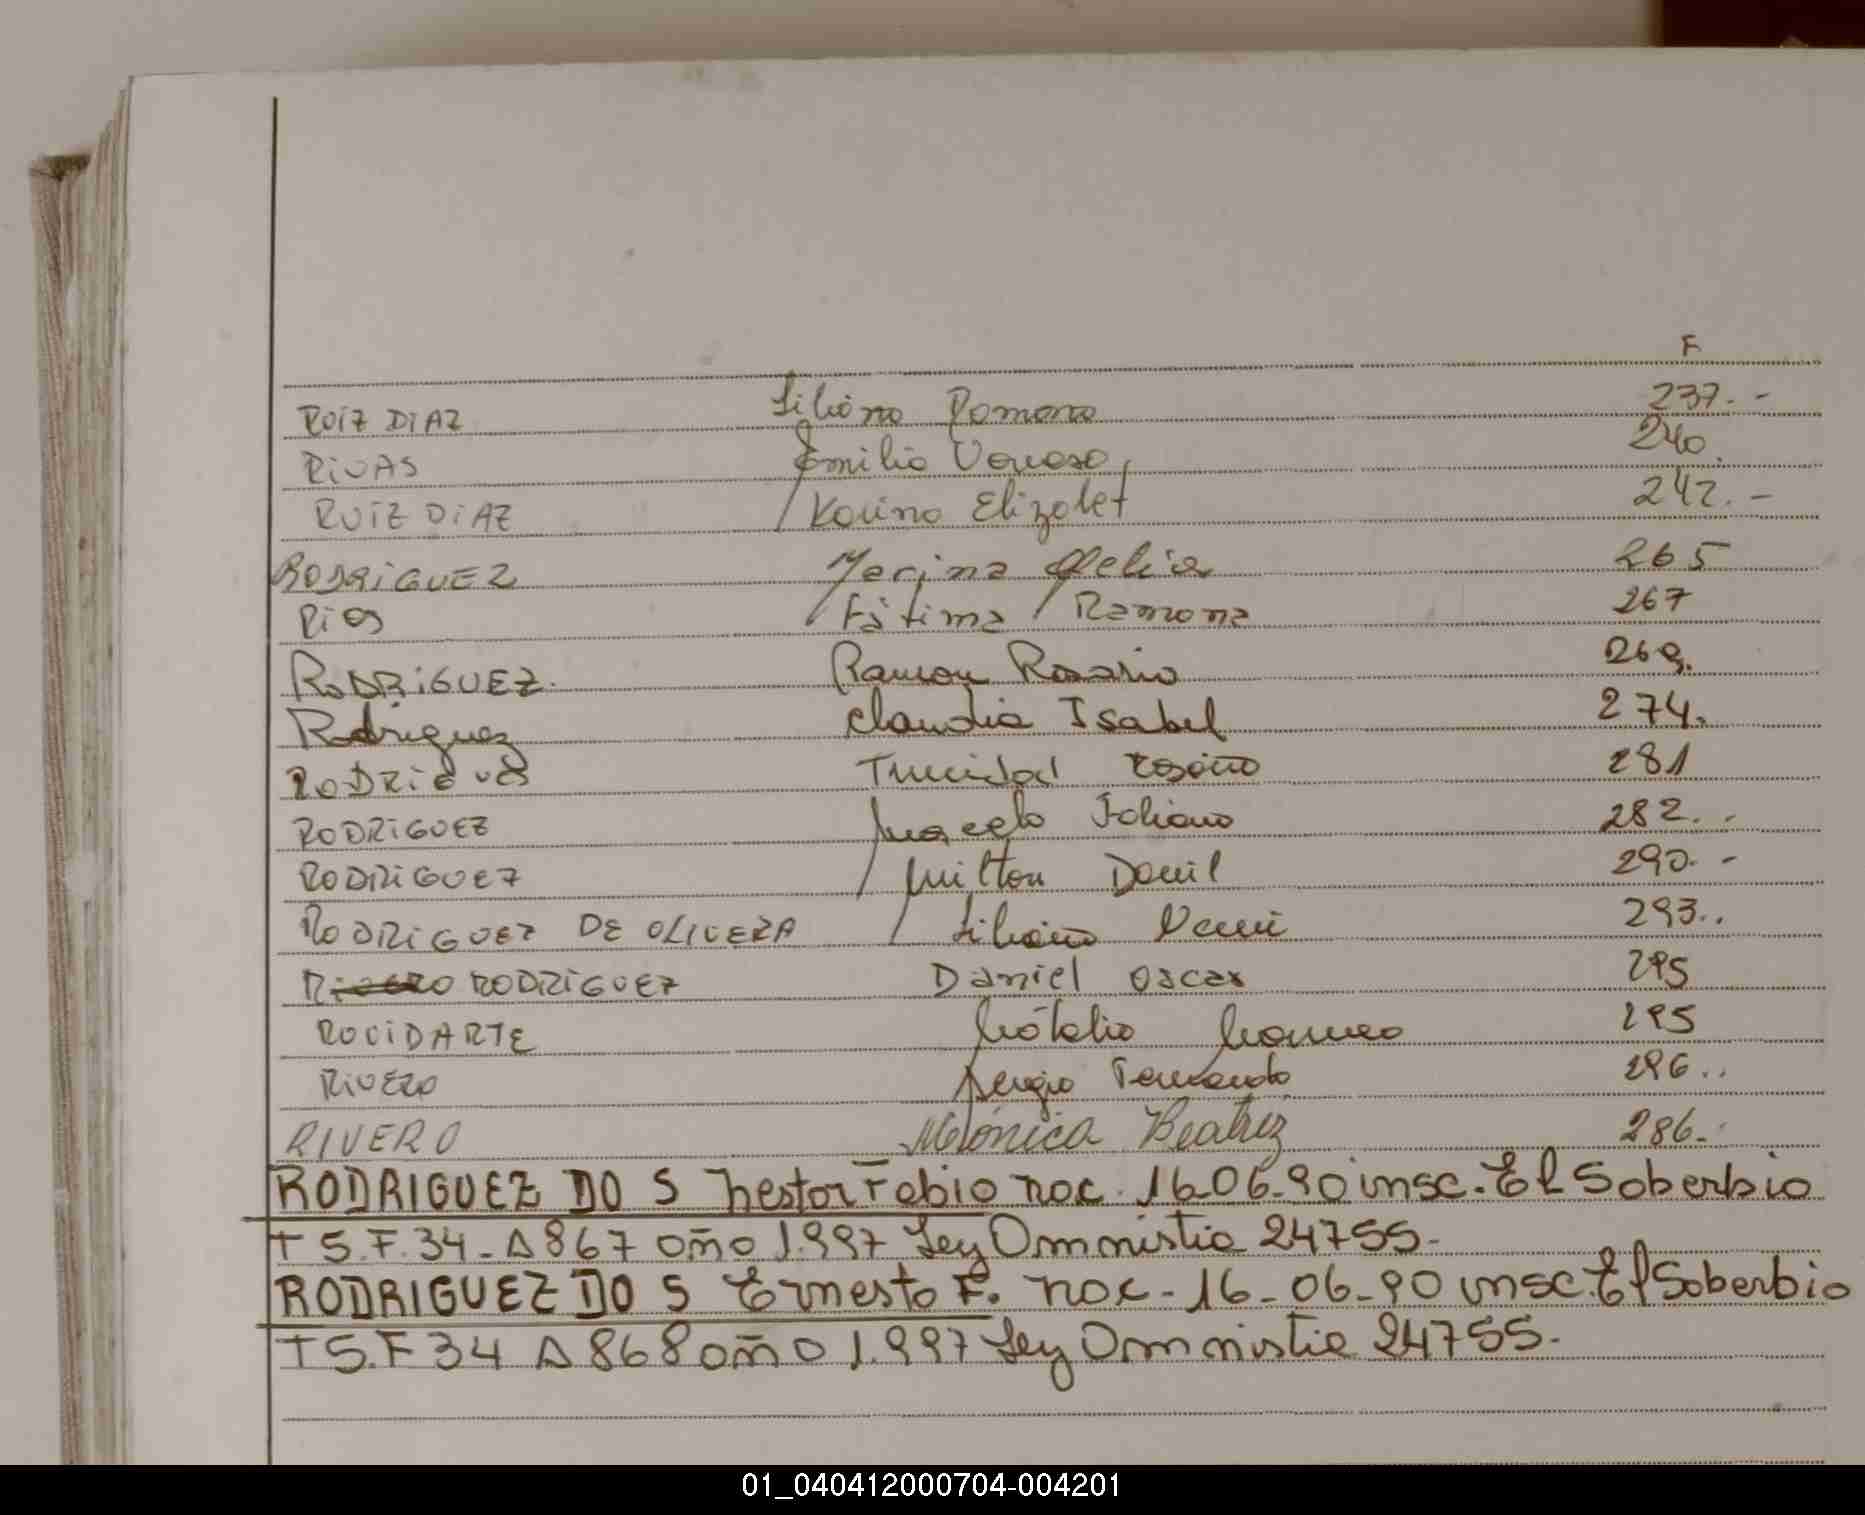 F
RUIZ DIAZ Liliana Romona 237.-
RIVAS Emilio 240.
RUIZ DIAZ Karina Elizabet 242.-
RODRIGUEZ Marina Delia 265
Rios Fátima Ramona 267
RODRIGUEZ. Ramon Rosario 269.
Rodriguez Claudia Isabel 274.
RODRIGUES Trinidad 281
RODRIGUEZ Marcelo Fabiano 282..
RODRIGUEZ Milton Daniel 290.-
RODRIGUEZ DE OLIVERA Liliana 293..
RODRIGUEZ Daniel Oscar 295
ROVIDARTE 295
RIVERO Sergio Fernando 296..
RIVERO Mónica Beatriz 286.
RODRIGUEZ DO S Nestor Fabio nac. 16-06-90 insc. El Soberbio
T S.F. 34-A 867 año 1.997 Ley Omnistia 24755-
RODRIGUEZ DO S Ernesto F. nac-16-06-90 insc. El Soberbio
T S.F 34 A 868 año 1.997 Ley Omnistia 24755-
01_040412000704-004201